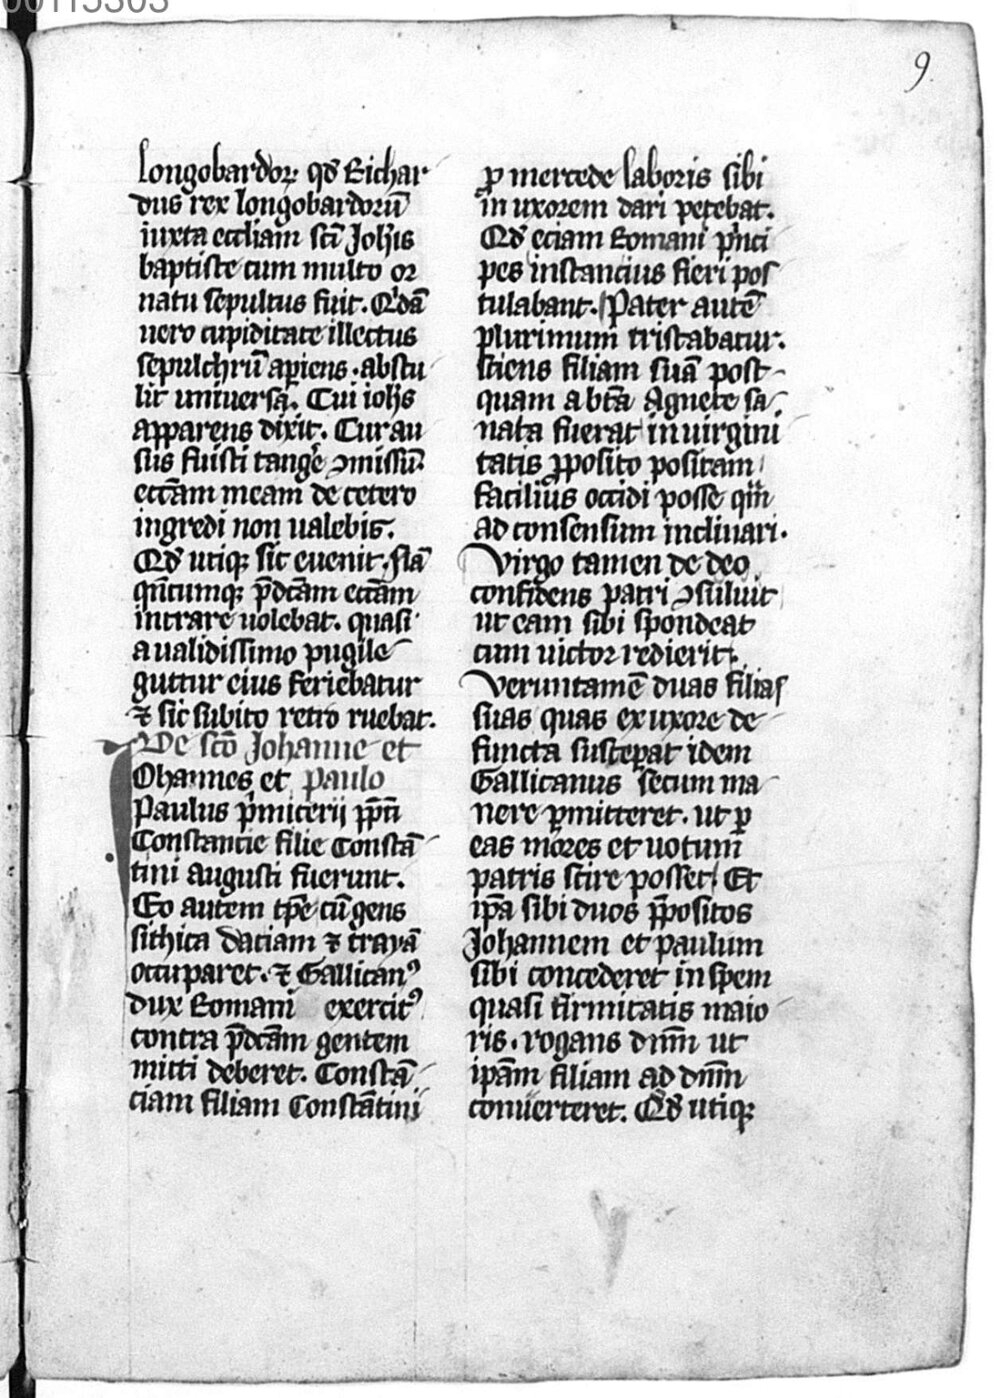 00115303
9
longobardoꝝ qđ Richar
dus rex longobardorū
iuxta eccliam sc̄i Joh̄is
baptiste cum multo or
natu sepultus fuit. Q'dā
uero cupiditate illectus
sepulchrū aꝑiens. abstu
lit universa. Cui ioh̄s
apparens dixit. Cur au
sus fuisti tanḡe ꝯmissū.
ecc̄am meam de cetero
ingredi non ualebis.
Qđ utiqꝫ sic euenit. Nā
qn̄cumqꝫ p̄dc̄am ecc̄am
intrare uolebat. quasi
a ualidissimo pugile
guttur eius feriebatur
⁊ sic subito retro ruebat.
De sc̄o Johanne et
Ohannes et Paulo
Paulus p'micerij p̄pn̄ti
Constancie filie Constā
tini augusti fuerunt.
Eo autem tp̄e cū gens
sithica daciam ⁊ trayā
occuparet. ⁊ Gallicanꝰ
dux Romani exercitꝰ
contra p̄dc̄am gentem
mitti deberet. Constā
ciam filiam Constātini
ꝓ mercede laboris sibi
in uxorem dari petebat.
Qđ eciam Romani p'nci
pes instancius fieri pos
tulabant. Pater autē
plurimum tristabatur.
sciens filiam suā post
quam a bt̄a Agnete sa
nata fuerat in uirgini
tatis ꝓposito positam
facilius occidi posse qm̄
ad consensum inclinari.
Virgo tamen de deo
confidens patri ꝯsuluit
ut eam sibi spondeat
cum uictor redierit.
Veruntamē duas filias
suas quas ex uxore de
functa susceꝑat idem
Gallicanus secum ma
nere ꝑmitteret. ut ꝑ
eas mores et uotum
patris scire posset. Et
ip̄a sibi duos p̄positos
Johannem et paulum
sibi concederet in spem
quasi firmitatis maio
ris. rogans dn̄m ut
ip̄am filiam ad dn̄m
conuerteret. Qđ utiqꝫ